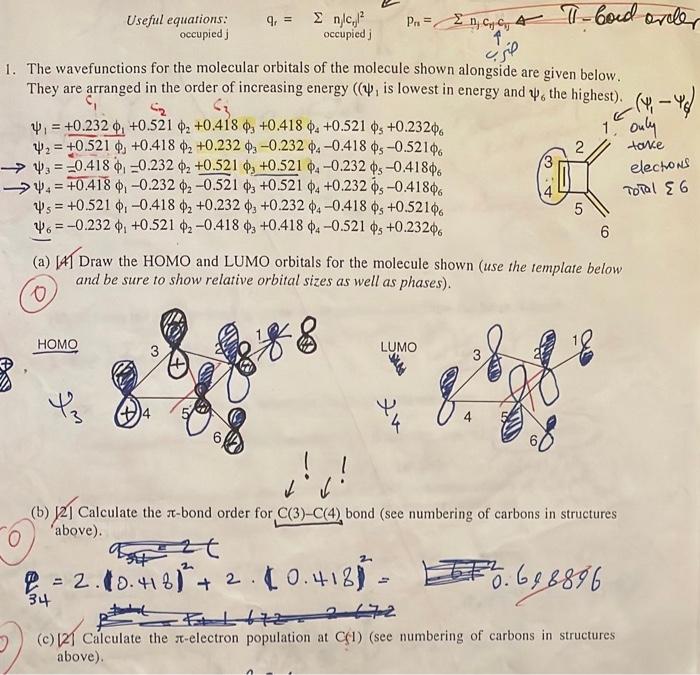 Useful equations: qr = Σ nj|crj|² Prs = Σ nj crj csj π-bond order
occupied j occupied j
1. The wavefunctions for the molecular orbitals of the molecule shown alongside are given below.
They are arranged in the order of increasing energy ((ψ1 is lowest in energy and ψ6 the highest).
(ψ1 - ψ6)
C1 C2 C3
ψ1 = +0.232 ϕ1 +0.521 ϕ2 +0.418 ϕ3 +0.418 ϕ4 +0.521 ϕ5 +0.232ϕ6
ψ2 = +0.521 ϕ1 +0.418 ϕ2 +0.232 ϕ3 -0.232 ϕ4 -0.418 ϕ5 -0.521ϕ6
→ ψ3 = -0.418 ϕ1 -0.232 ϕ2 +0.521 ϕ3 +0.521 ϕ4 -0.232 ϕ5 -0.418ϕ6
→ ψ4 = +0.418 ϕ1 -0.232 ϕ2 -0.521 ϕ3 +0.521 ϕ4 +0.232 ϕ5 -0.418ϕ6
ψ5 = +0.521 ϕ1 -0.418 ϕ2 +0.232 ϕ3 +0.232 ϕ4 -0.418 ϕ5 +0.521ϕ6
ψ6 = -0.232 ϕ1 +0.521 ϕ2 -0.418 ϕ3 +0.418 ϕ4 -0.521 ϕ5 +0.232ϕ6
1
2
3
4
5
6
only
take
electrons
Total Σ 6
(a) [4] Draw the HOMO and LUMO orbitals for the molecule shown (use the template below
and be sure to show relative orbital sizes as well as phases).
0
HOMO
ψ3
1
2
3
4
5
6
LUMO
ψ4
1
2
3
4
5
6
! !
(b) [2] Calculate the π-bond order for C(3)–C(4) bond (see numbering of carbons in structures
above).
0
P34 = 2.(0.418)² + 2.(0.418)² = 0.698896
(c) [2] Calculate the π-electron population at C(1) (see numbering of carbons in structures
above).